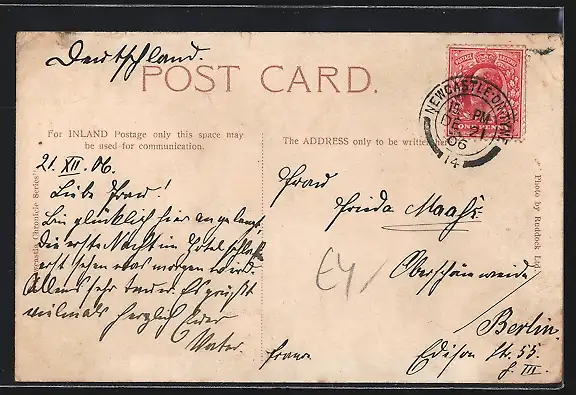 Deutschland.
POST CARD.
For INLAND Postage only this space may
be used for communication.
The ADDRESS only to be written here
NEWCASTLE-ON-TYNE
PM
DE 21
06
14
POSTAGE REVENUE
ONE PENNY
21. XII. 06.
Liebe Frau!
Bin glücklich hier angelangt.
die erste Nacht im Hotel schlafe
erst sehen was morgen wird.
Alles sehr teuer Es grüßt
vielmals herzlich Euer
Vater.
Frau
Frieda Maass.
Oberschöneweide
Berlin.
Edison Str. 55.
E4/
Newcastle Chronicle Series
Photo by Ruddock Ltd.